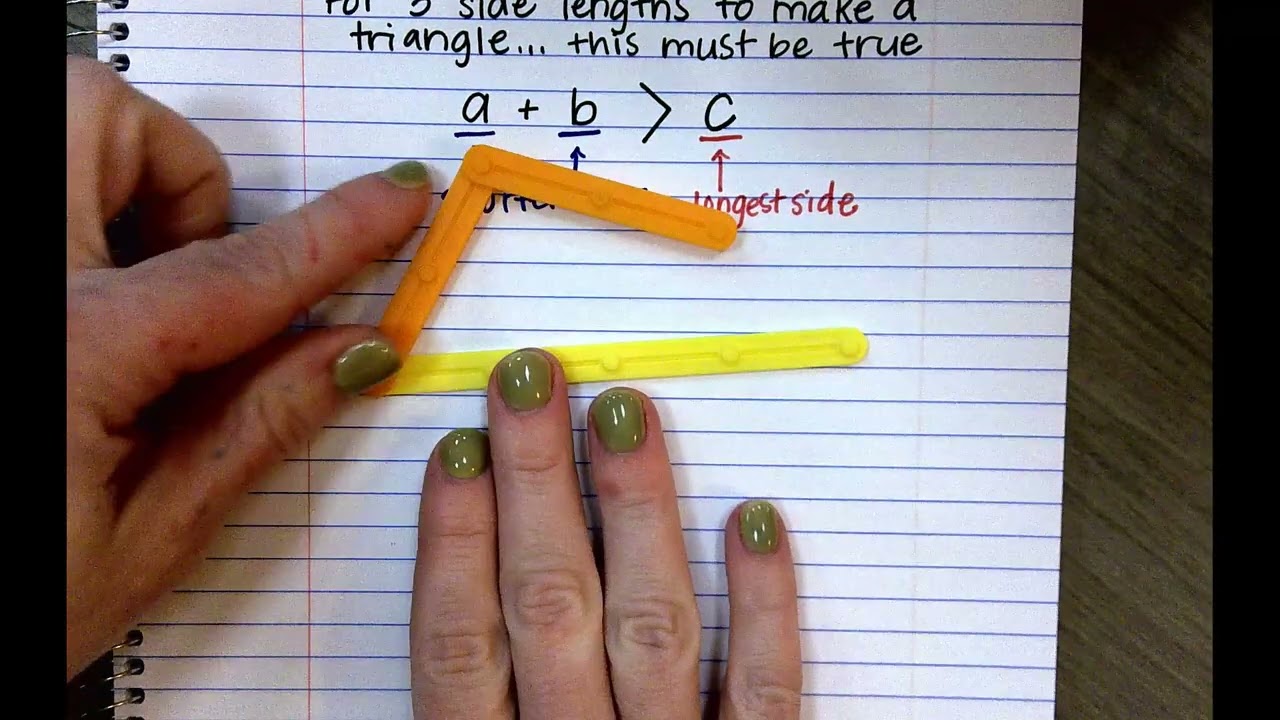 for 3 side lengths to make a
triangle... this must be true
a + b > c
longest side